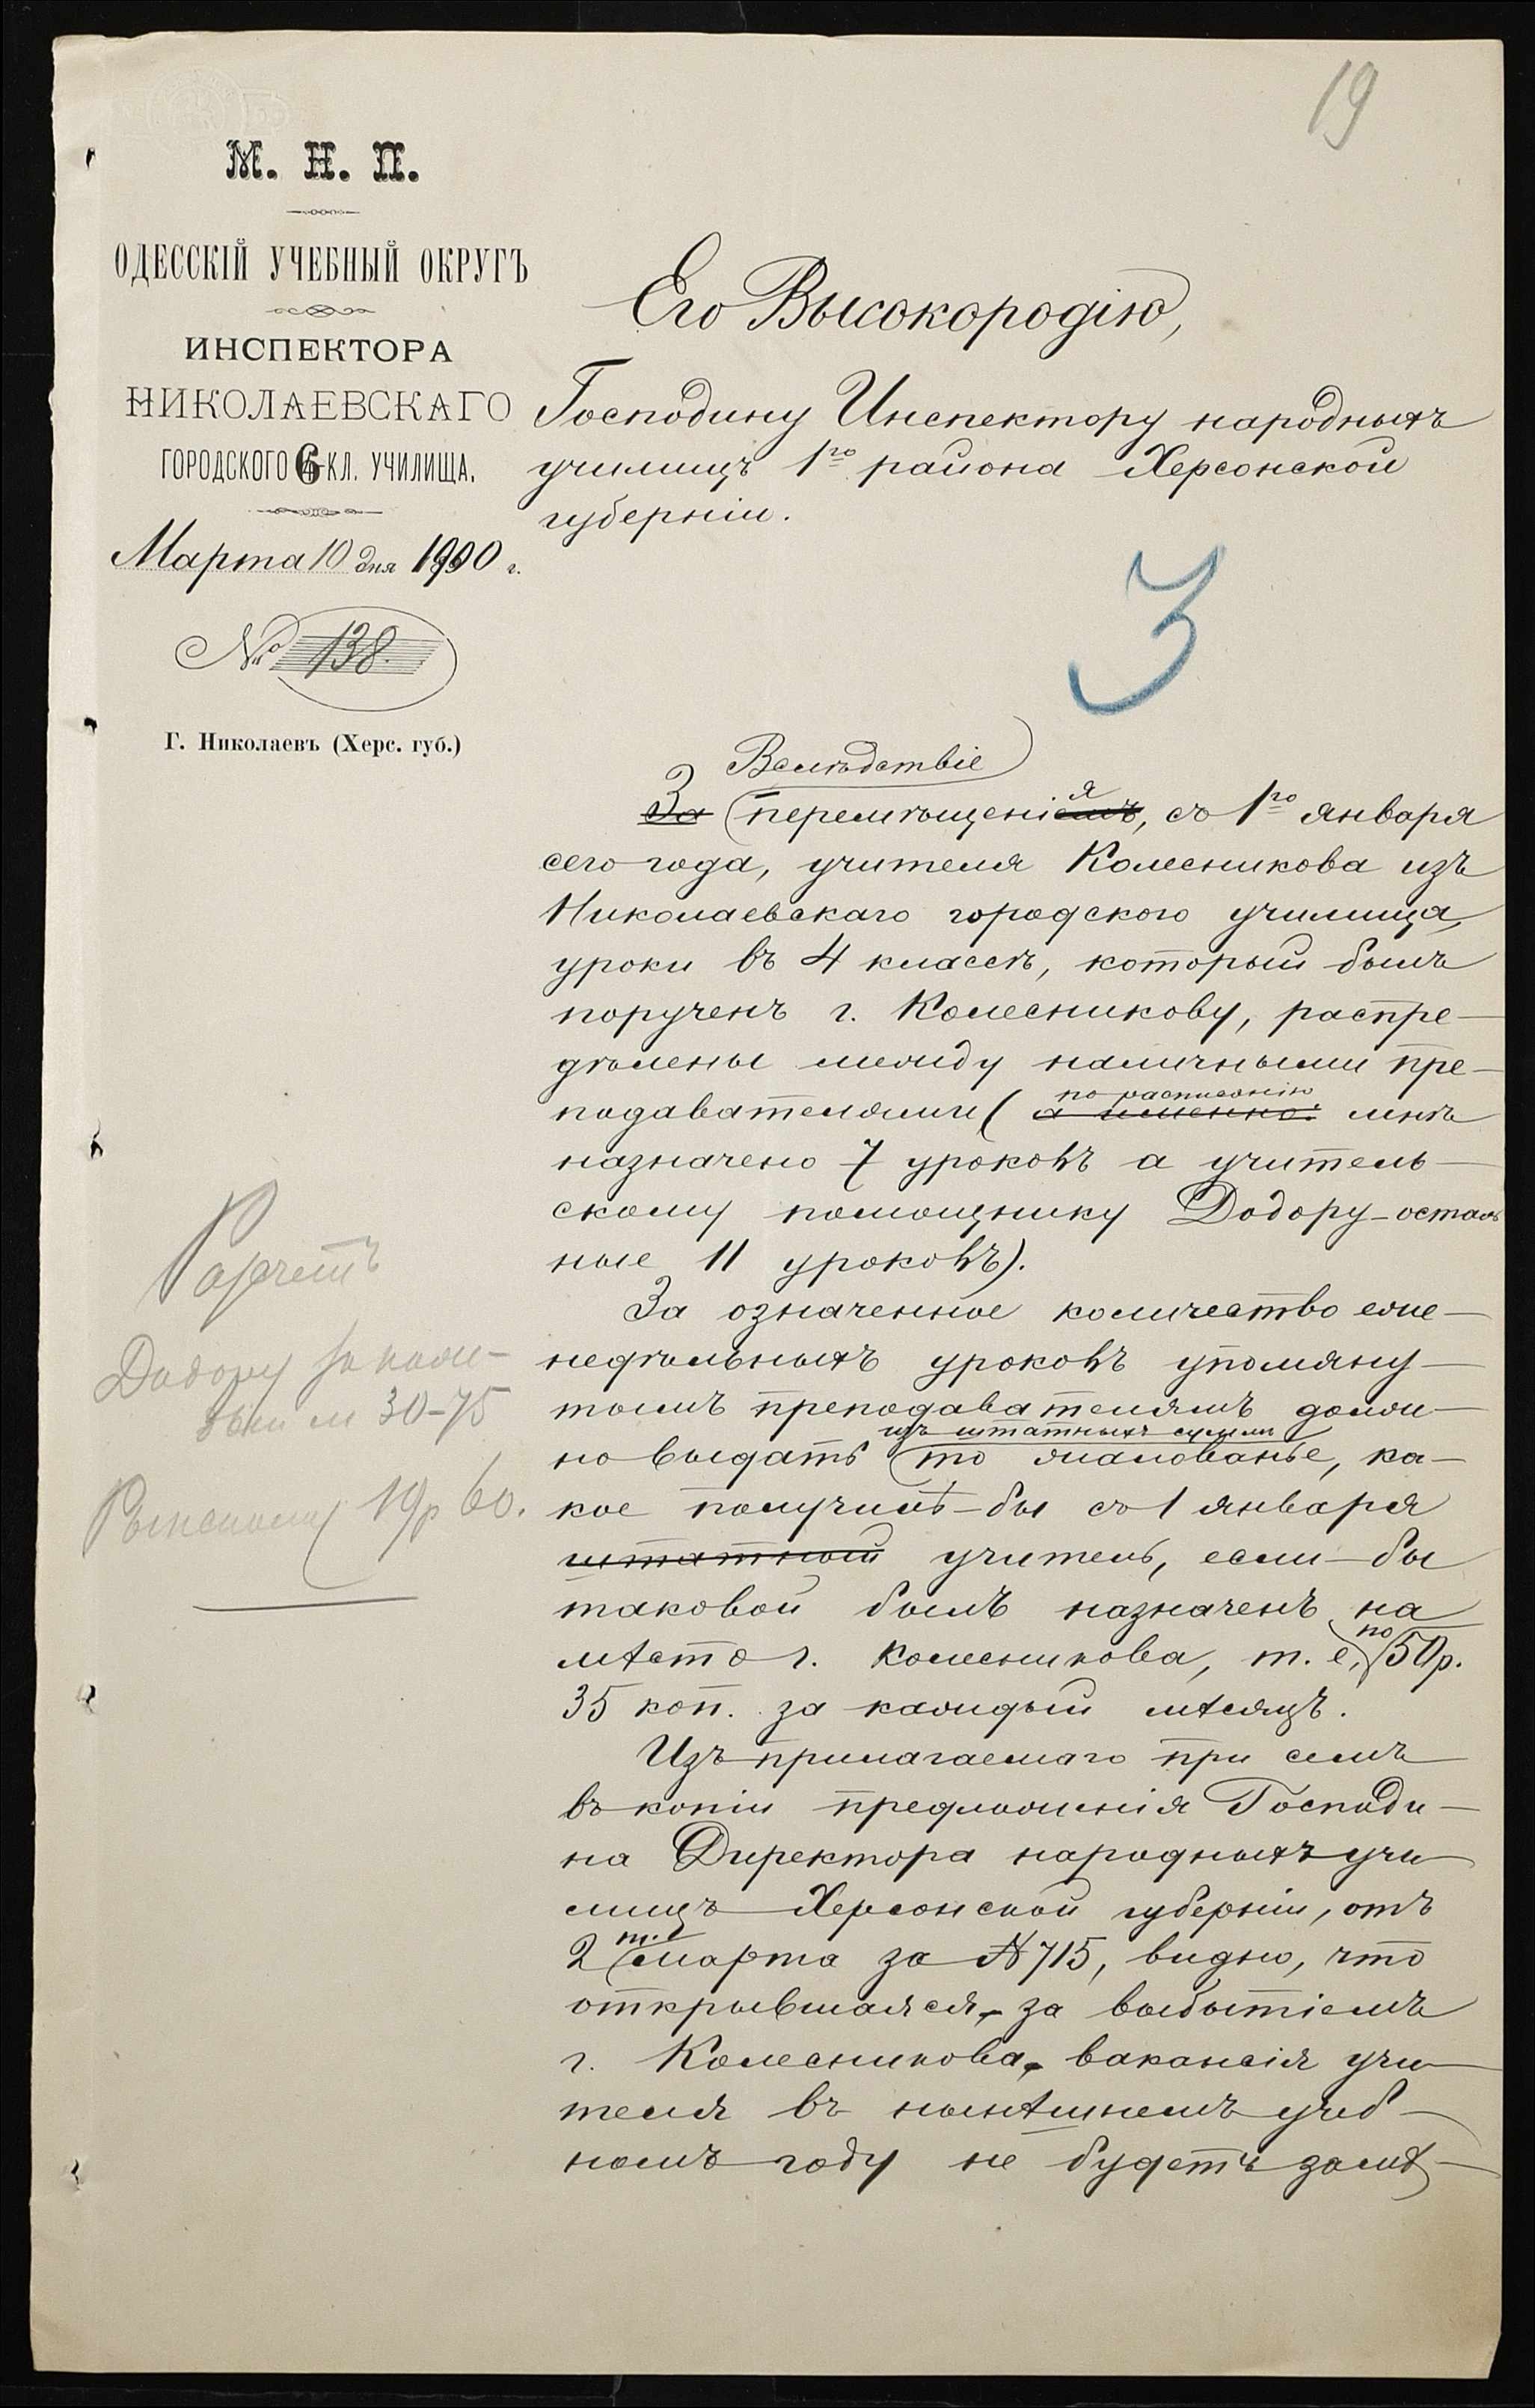 19
М. Н. П.
ОДЕССКІЙ УЧЕБНЫЙ ОКРУГЪ
ИНСПЕКТОРА
НИКОЛАЕВСКАГО
ГОРОДСКОГО 6 КЛ. УЧИЛИЩА.
Марта 10 дня 1900 г.
№ 138.
Г. Николаевъ (Херс. губ.)
Его Высокородію,
Господину Инспектору народныхъ
училищъ 1го района Херсонской
губерніи.
3
Вслѣдствіе
За перемѣщеніемъ я, съ 1го января
сего года, учителя Колесникова изъ
Николаевскаго городского училища,
уроки въ 4 классѣ, который былъ
порученъ г. Колесникову, распре-
дѣлены между наличными пре-
по расписанію
подавателями (а именно: мнѣ
назначено 7 уроковъ а учитель-
скому помощнику Додору - осталь
ные 11 уроковъ).
За означенное количество еже-
недѣльныхъ уроковъ упомяну-
тымъ преподавателямъ долж-
изъ штатныхъ суммъ
но выдать то жалованье, ка-
кое получилъ-бы съ 1 января
штатный учитель, если-бы
таковой былъ назначенъ на
мѣсто г. Колесникова, т. е. по 50р.
35 коп. за каждый мѣсяцъ.
Изъ прилагаемаго при семъ
въ копіи предложенія Господи-
на Директора народныхъ учи
лищъ Херсонской губерніи, отъ
2 т.е марта за № 715, видно, что
открывшаяся, за выбытіемъ
г. Колесникова, вакансія учи-
теля въ нынѣшнемъ учеб-
номъ году не будетъ замѣ-
Расчетъ
Додору
30-75
19р 60.